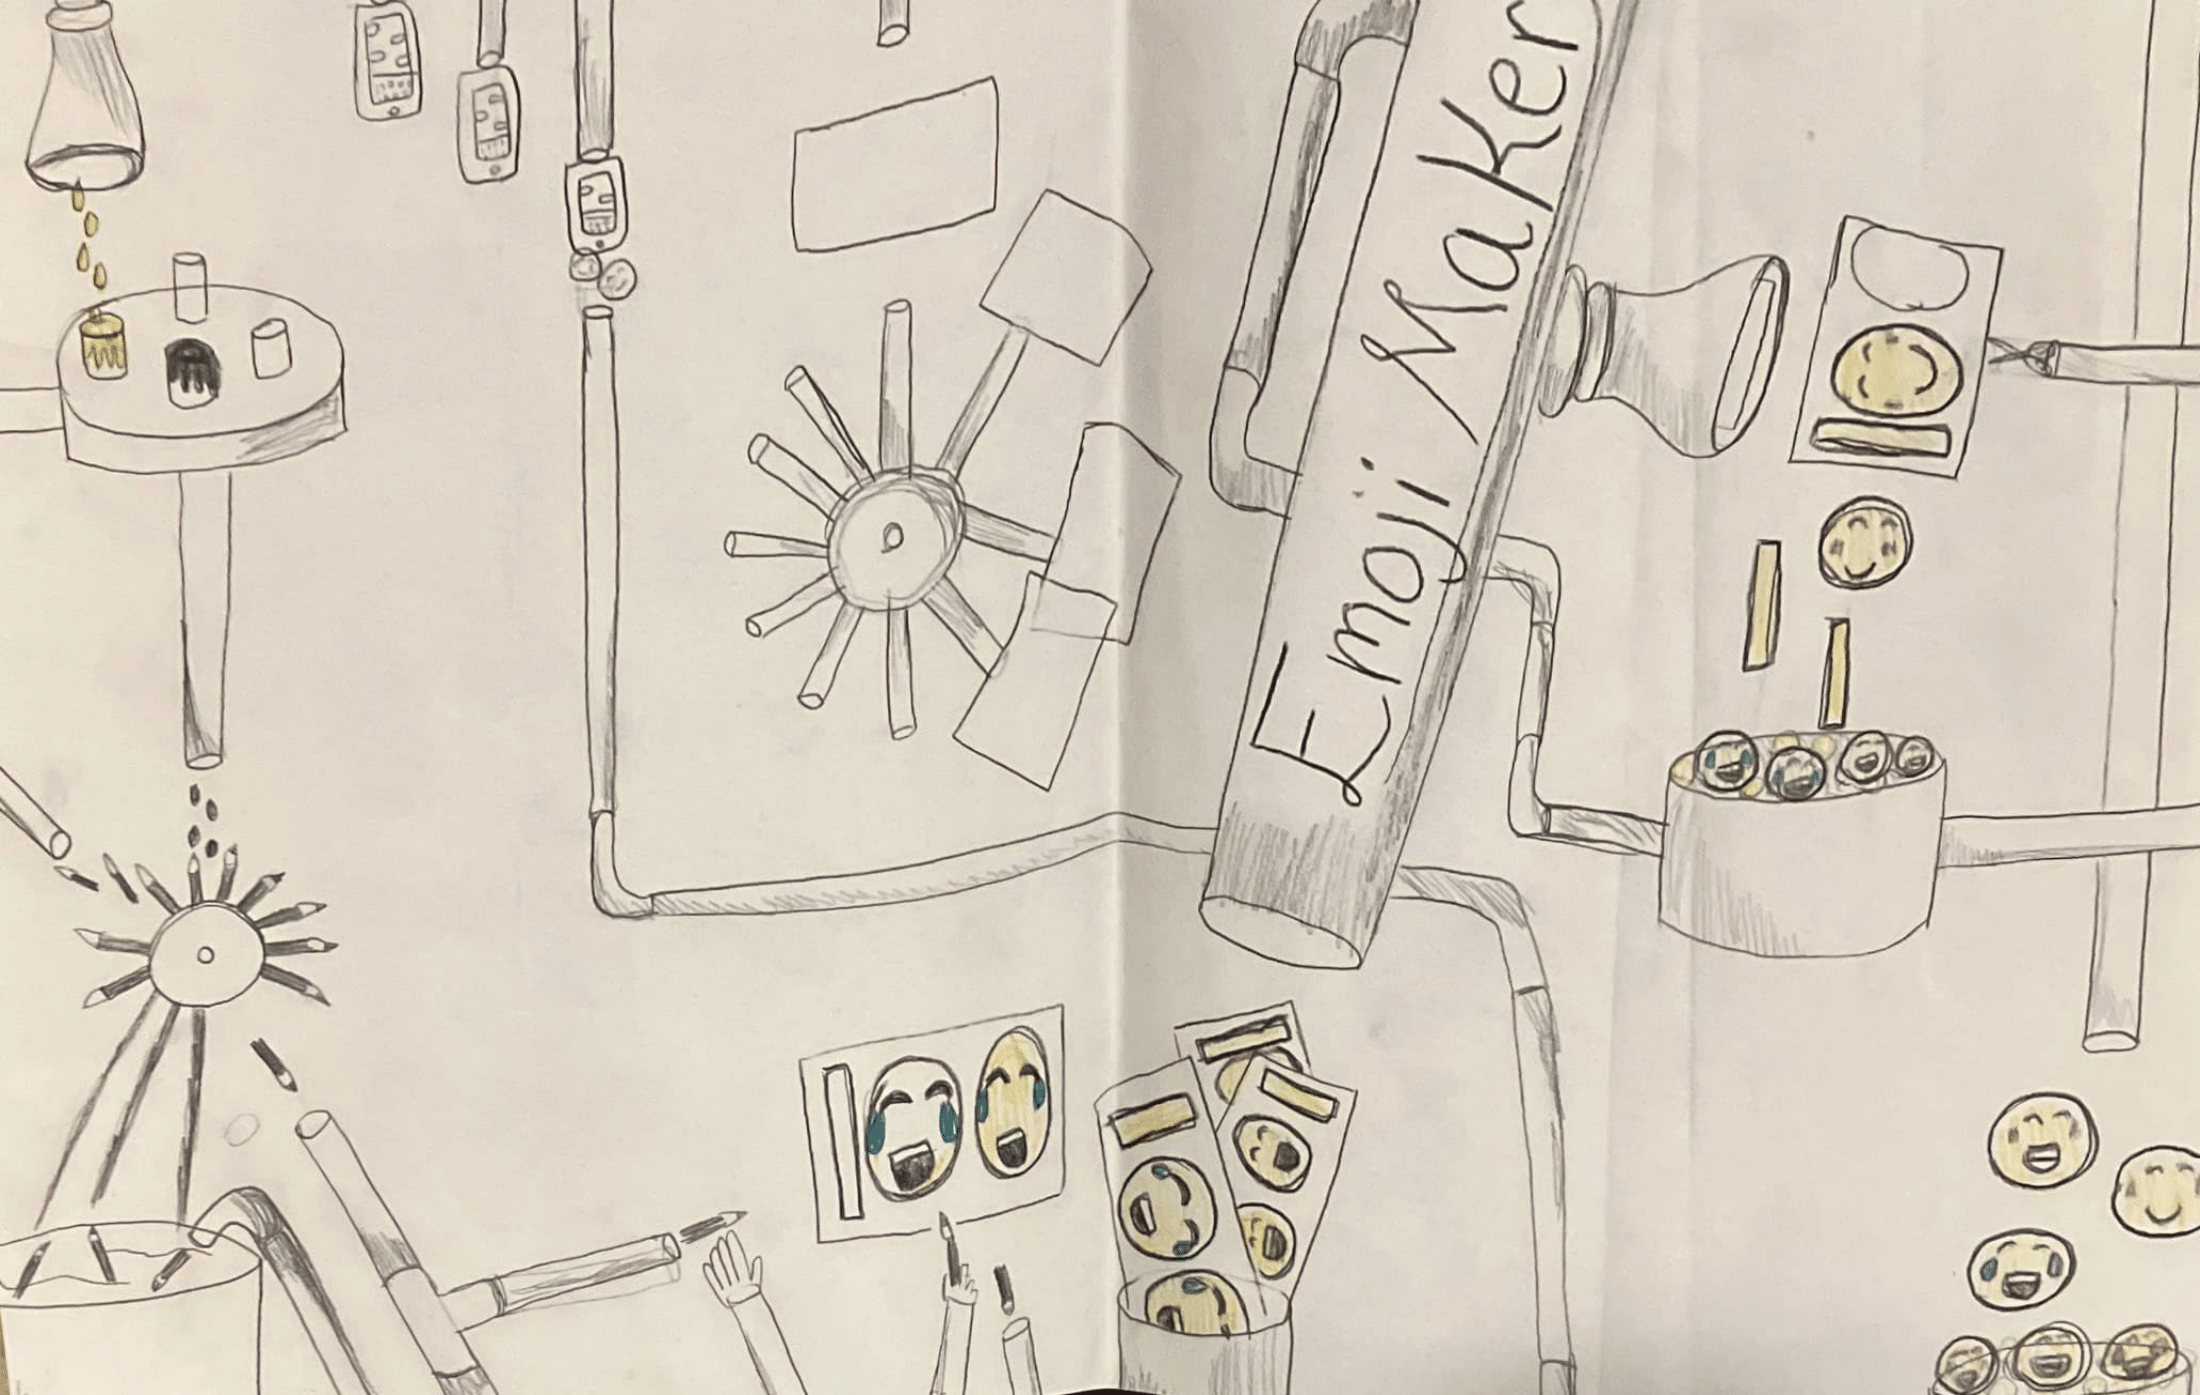 Emoji Maker